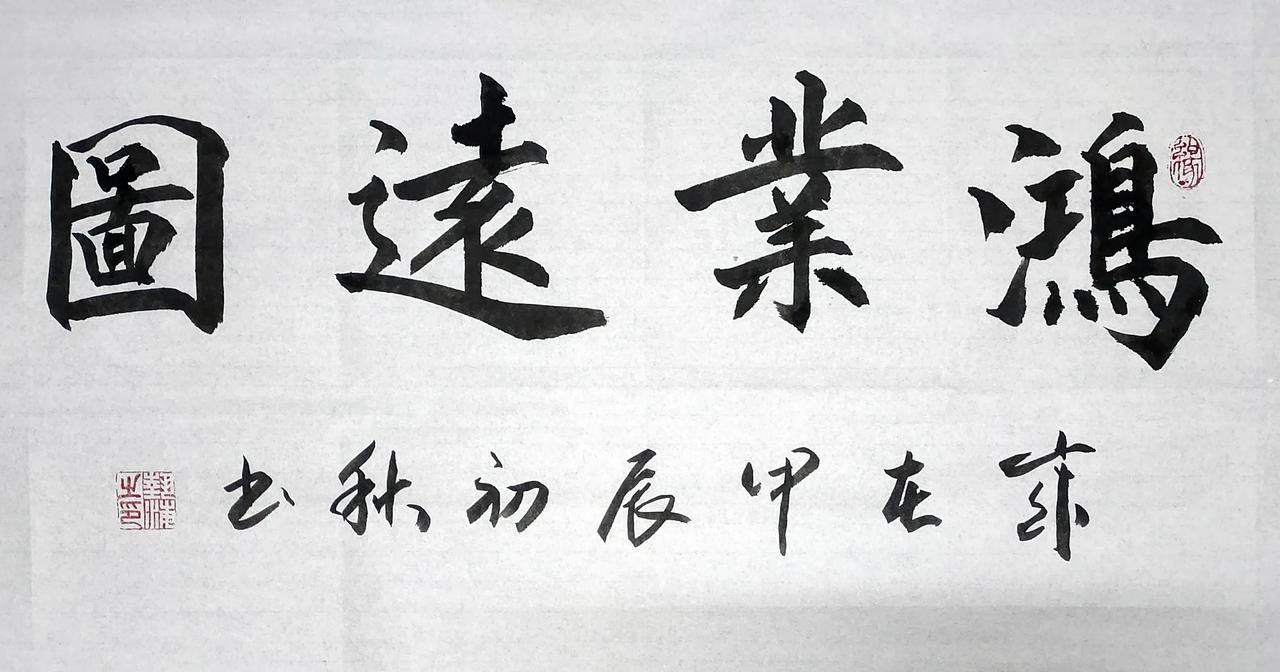 鴻業遠圖
歲在甲辰初秋书